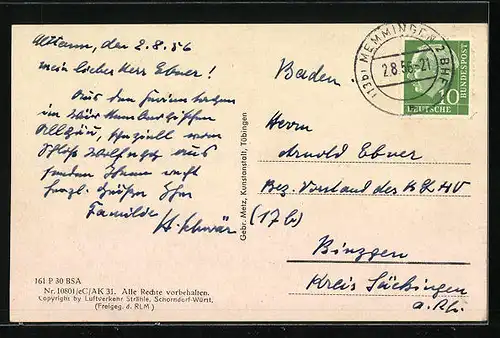 Altann, den 2.8.56
mein lieber Herr Ebner!
Aus den Ferientagen
im Württembergischen
Allgäu, speziell vom
Schloß Wolfegg aus
senden Ihnen recht
herzl. Grüße Ihre
Familie
H. Schwär
161 P 30 BSA
Nr. 10801/eC/AK 31. Alle Rechte vorbehalten.
Copyright by Luftverkehr Strähle, Schorndorf-Württ.
(Freigeg. d. RLM)
Gebr. Metz, Kunstanstalt, Tübingen
(13b) MEMMINGEN 2 BHF
2.8.56-21
10
DEUTSCHE BUNDESPOST
Baden
Herrn
Arnold Ebner
Bez. Vorstand des
(17b)
Binzgen
Kreis Säckingen
a. Rh.